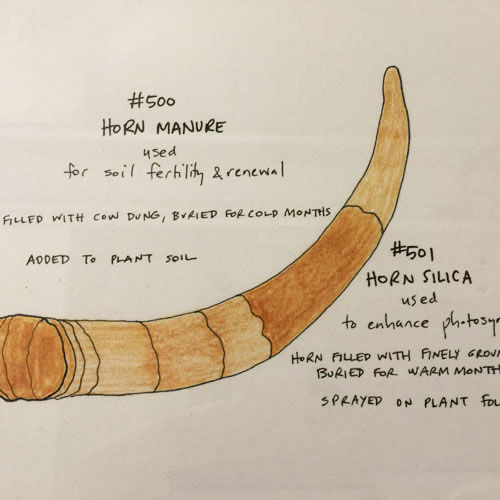 #500
HORN MANURE
used
for soil fertility & renewal
FILLED WITH COW DUNG, BURIED FOR COLD MONTHS
ADDED TO PLANT SOIL
#501
HORN SILICA
used
to enhance photosyn
HORN FILLED WITH FINELY GROUN
BURIED FOR WARM MONTH
SPRAYED ON PLANT FOL